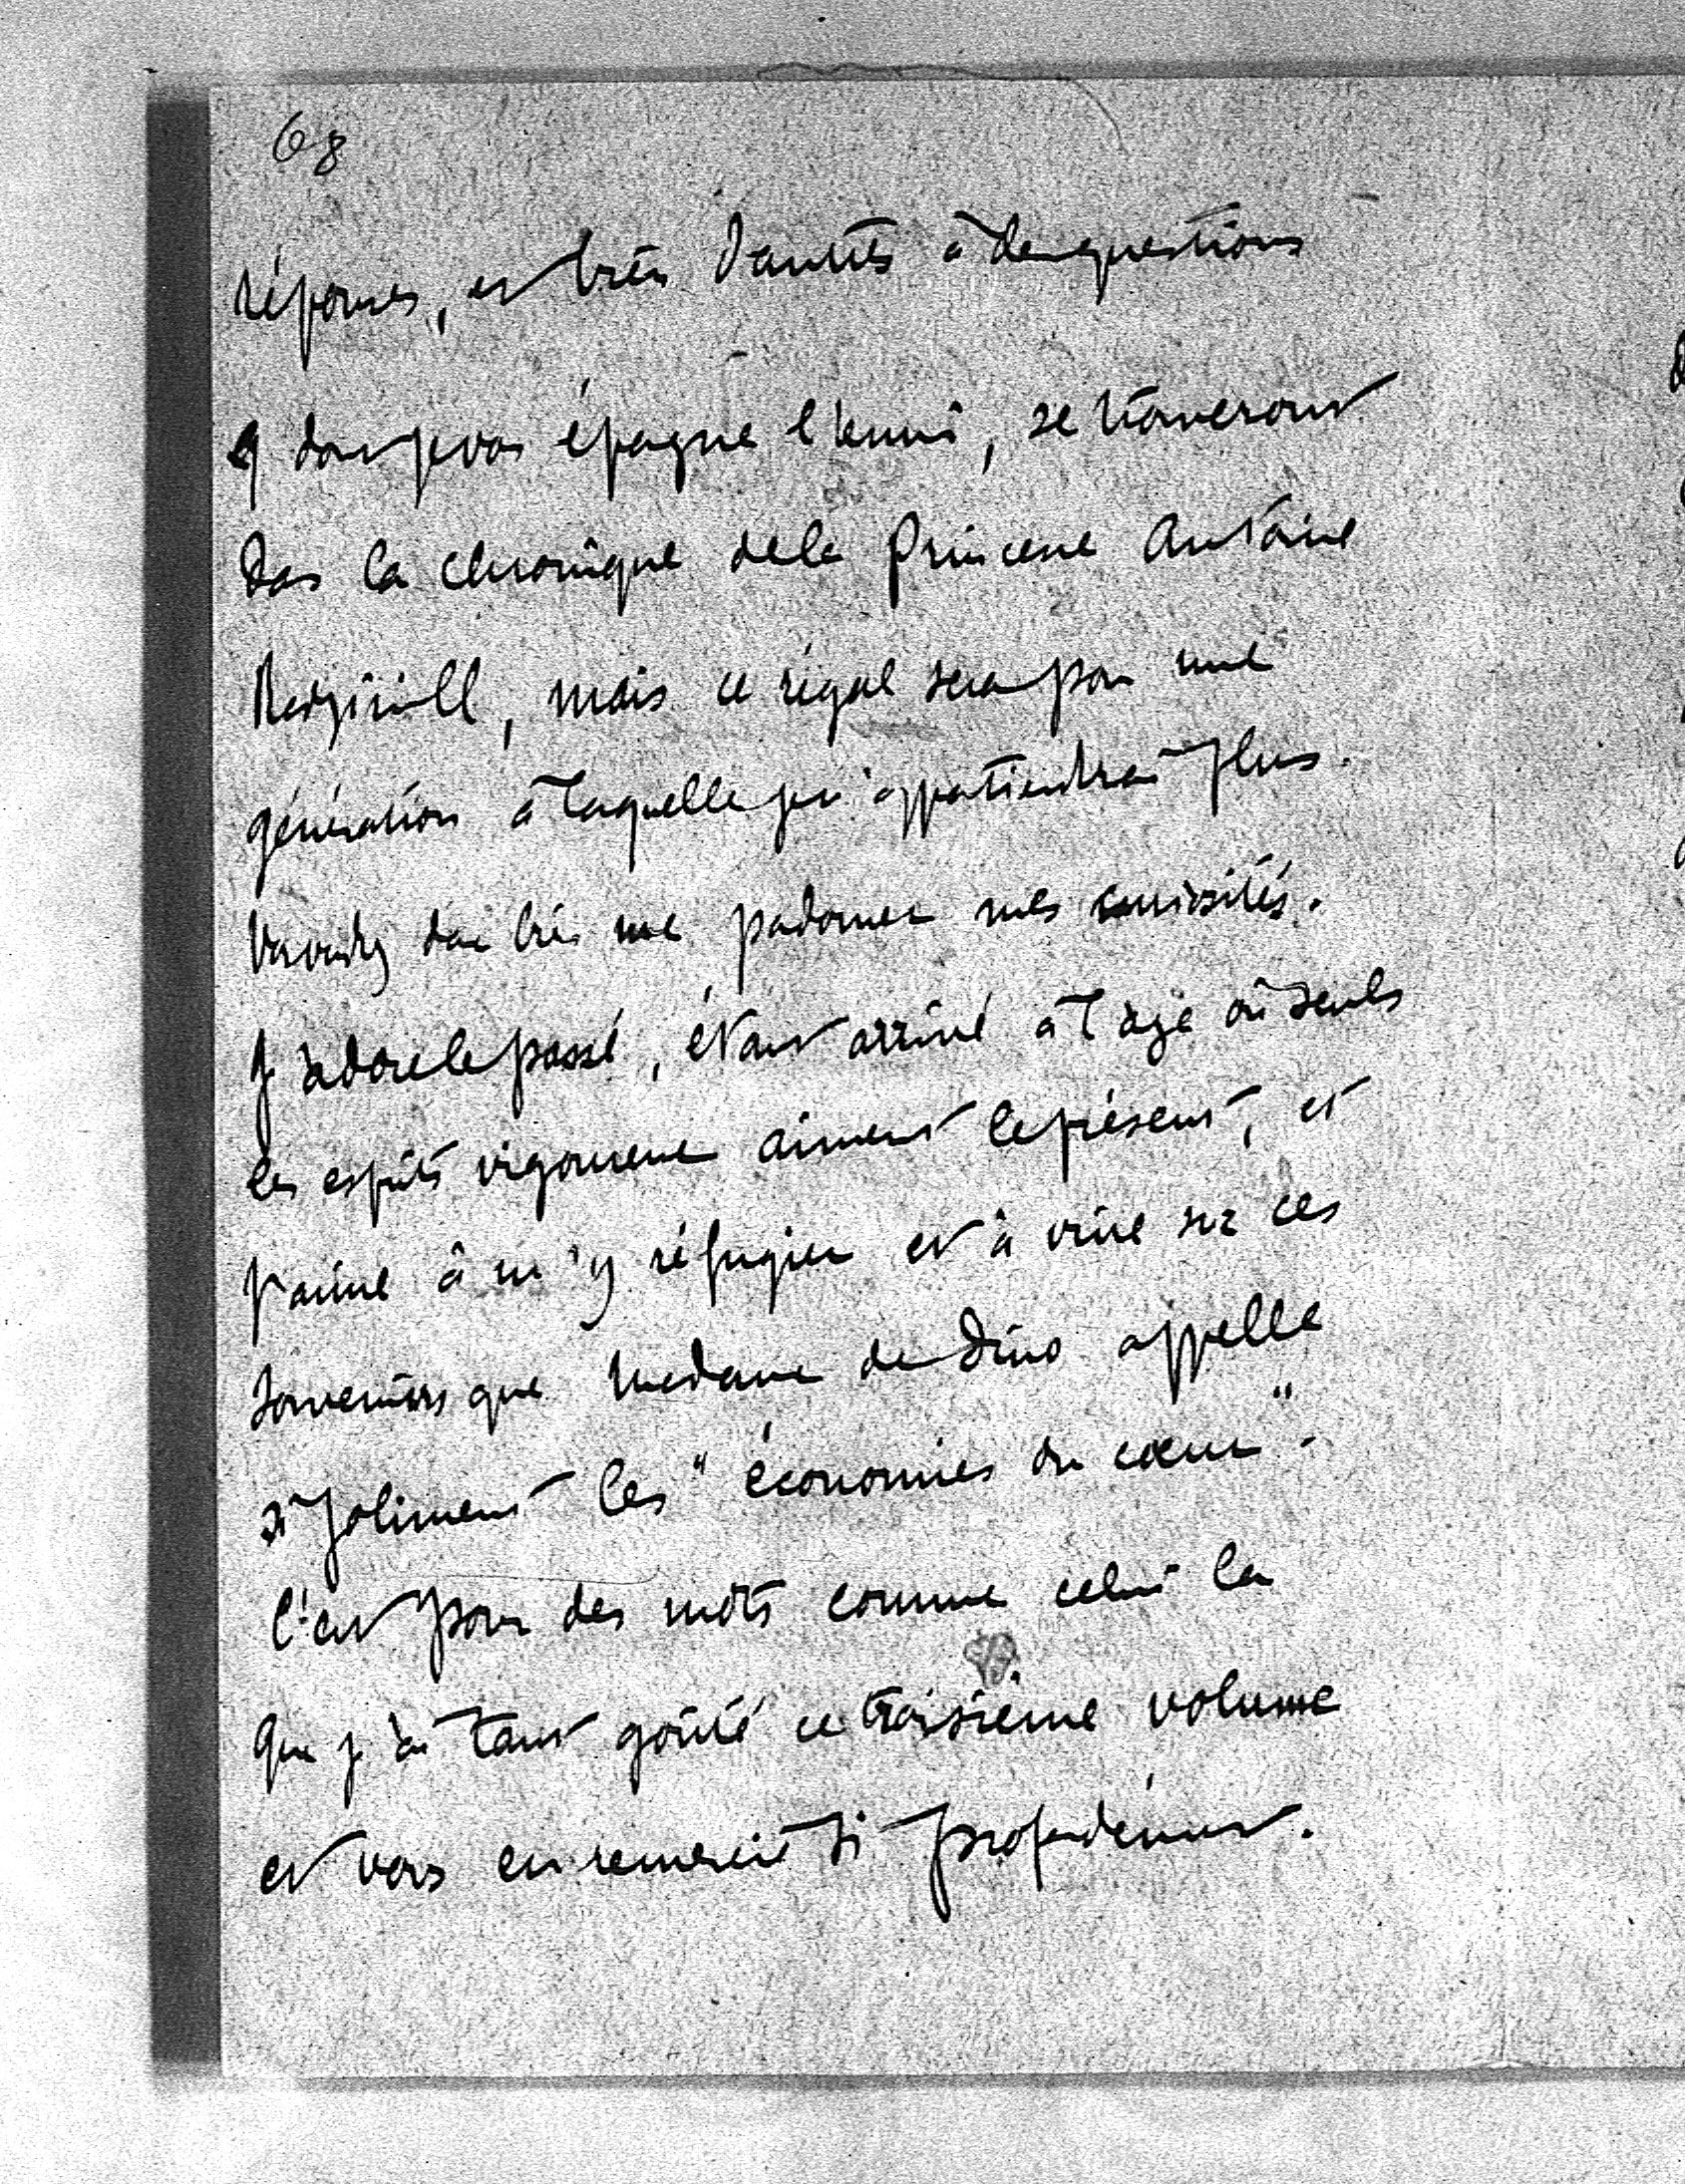 68
réponses, et bien d'autres à des questions
dont je vous épargne l'ennui, se trouveront
Dans la chronique de la Princesse Antoine
Radziwill, mais ce régal sera pour une
génération à laquelle je n'appartiendrai plus.
Vous voudrez donc bien me pardonner mes curiosités.
J'adore le passé, étant arrivé à l'âge où seuls
les esprits vigoureux aiment le présent, et
j'aime à m'y réfugier et à vivre sur ces
souvenirs que Madame de Dino appelle
si joliment les "économies du cœur".
C'est pour des mots comme celui là
que j'ai tant goûté ce troisième volume
et vous en remercie si profondément.